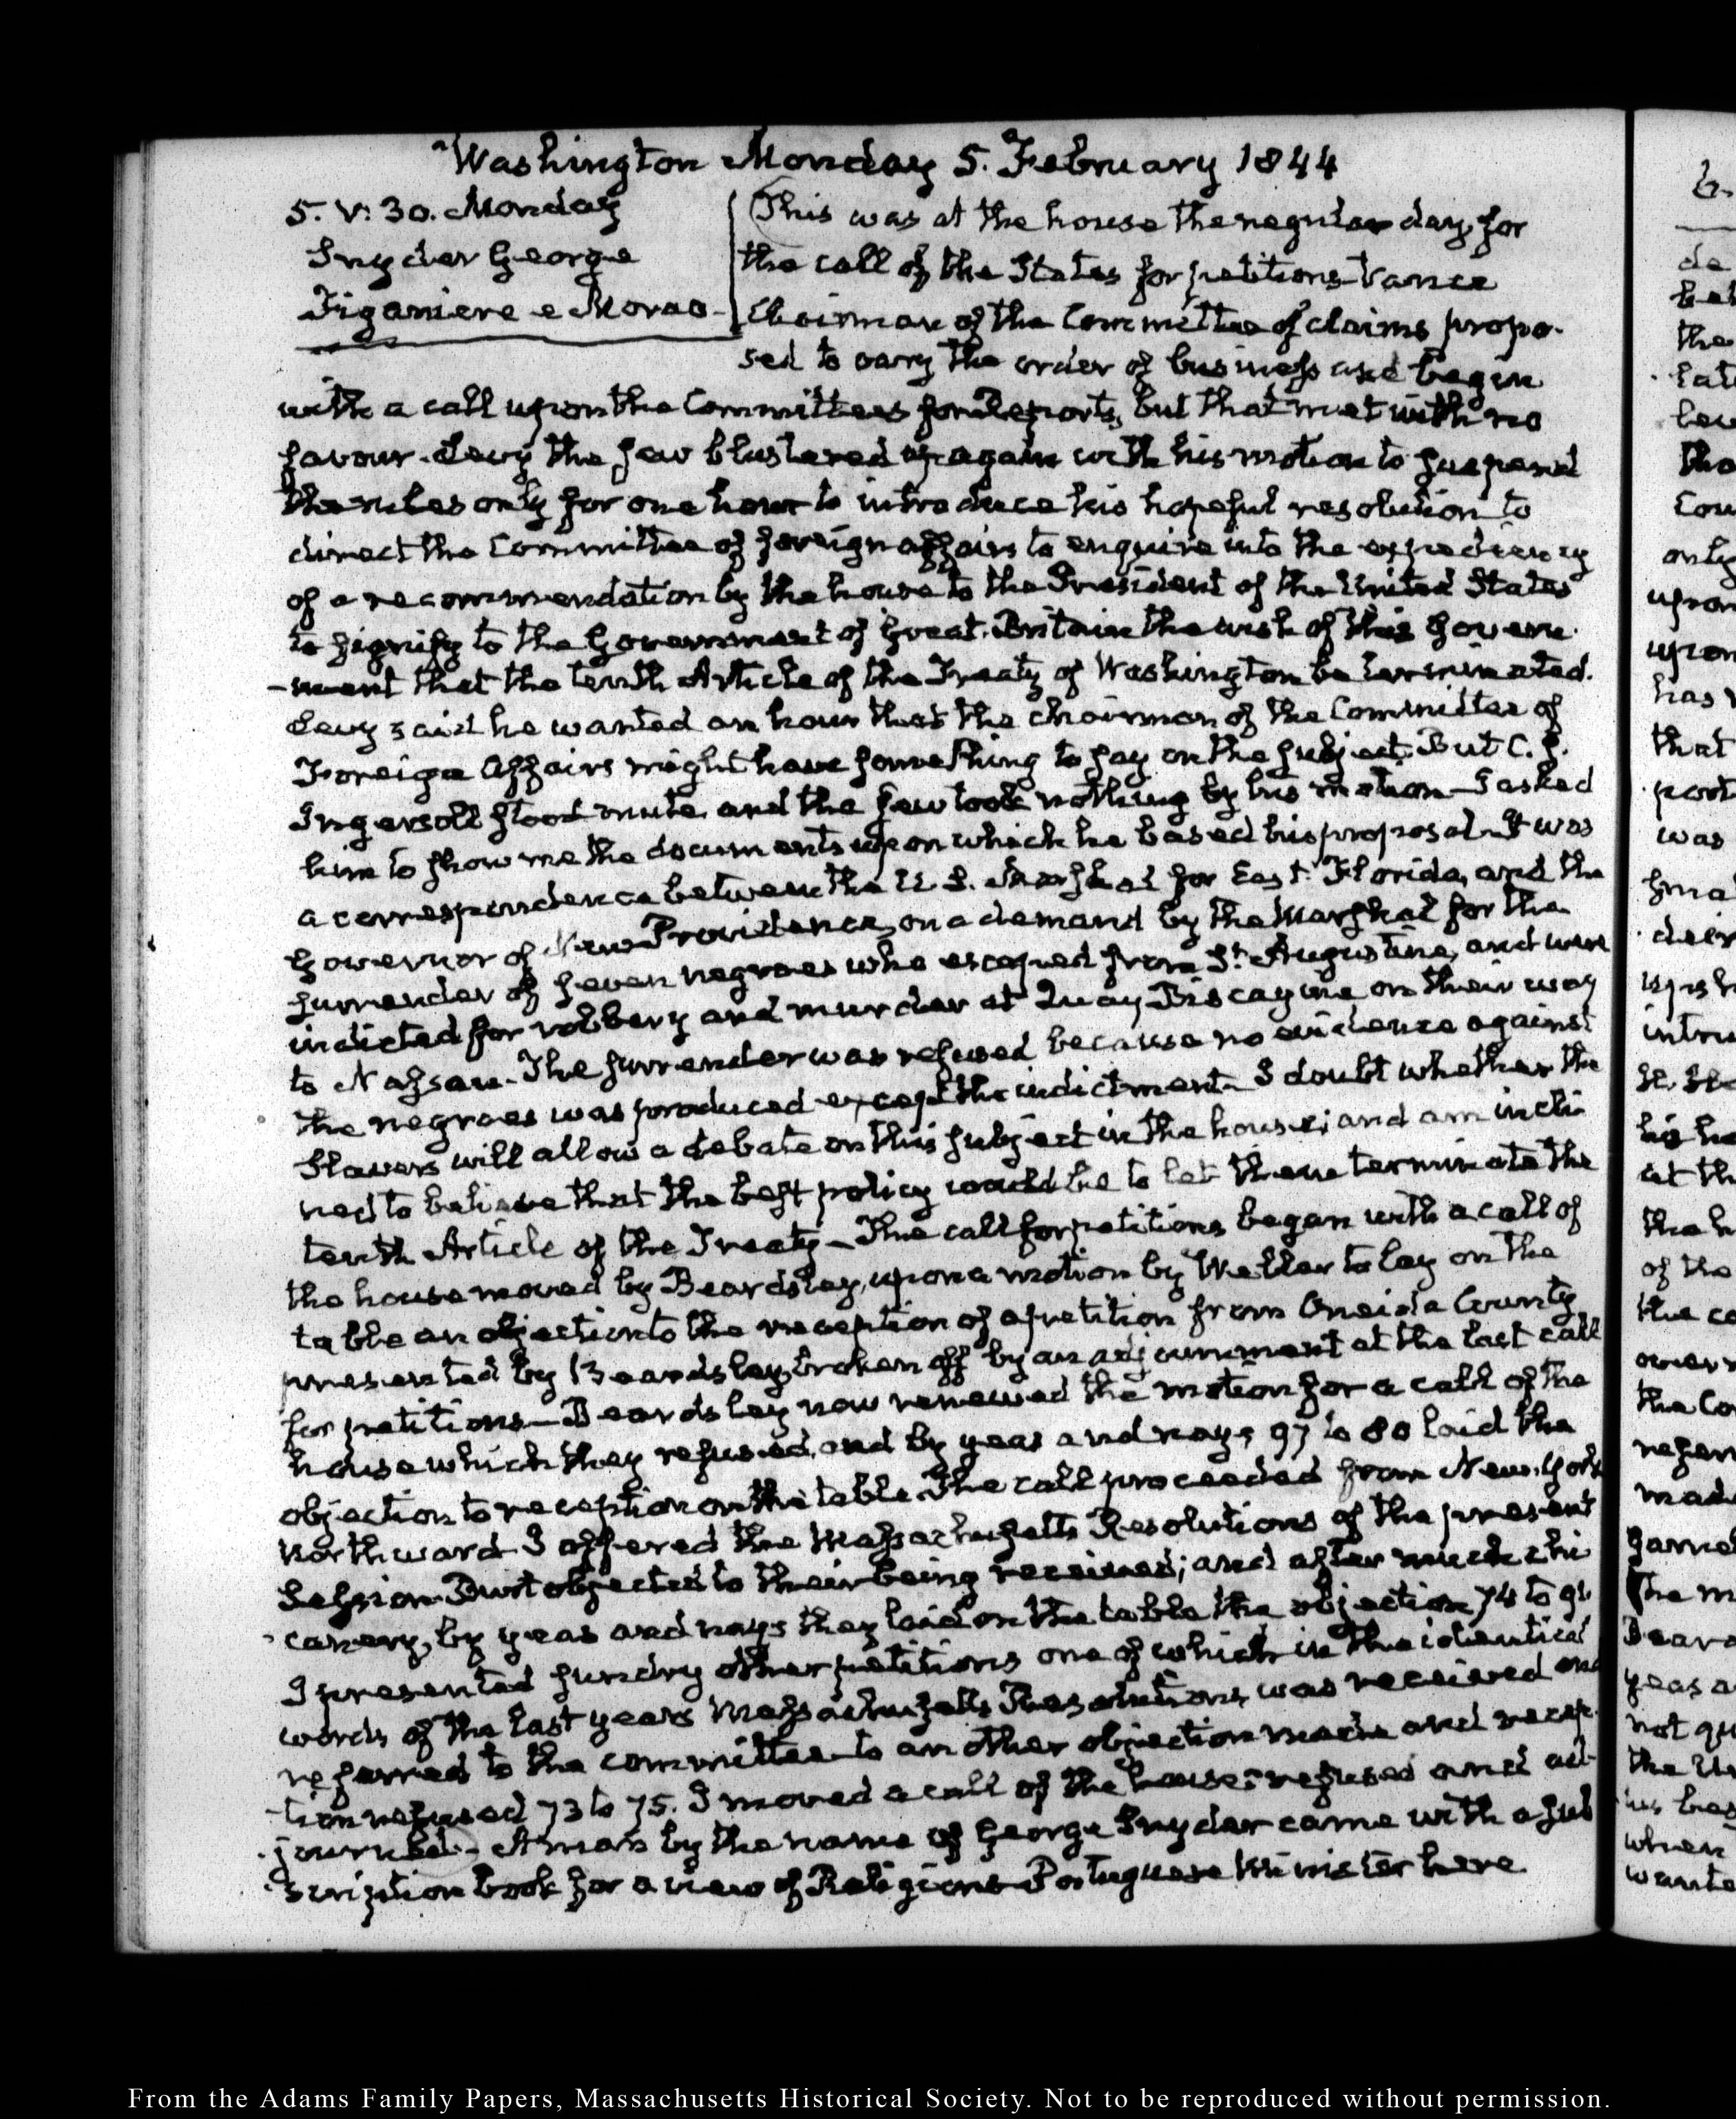 Washington Monday 5. February 1844
5. V: 30. Monday
Snyder George
Figaniere e Morao
This was at the house the regular day, for
the call of the States for petitions Vance
Chairman of the Committee of claims propo-
sed to vary the order of business and begin
with a call upon the Committees for Reports, but that met with no
favour. Levy the Jew blustered again with his motion to suspend
the rules only for one hour to introduce his hopeful resolution to
direct the Committee of foreign affairs to enquire into the expediency
of a recommendation by the house to the President of the United States
to signify to the Government of Great-Britain the wish of this Govern-
-ment that the tenth Article of the Treaty of Washington be terminated.
Levy said he wanted an hour that the chairman of the Committee of
Foreign Affairs might have something to say on the subject. But C. J.
Ingersoll stood mute and the Jew took nothing by his motion—I asked
him to show me the documents upon which he based his proposal—It was
a correspondence between the U. S. Marshal for East Florida, and the
Governor of New Providence, on a demand by the Marshal for the
surrender of seven negroes who escaped from St. Augustine, and were
indicted for robbery and murder at Quay Biscayne on their way
to Nassau—The surrender was refused because no evidence against
the negroes was produced except the indictment—I doubt whether the
Slavers will allow a debate on this subject in the house; and am incli
ned to believe that the best policy would be to let them terminate the
tenth Article of the Treaty—The call for petitions began with a call of
the house moved by Beardsley, upon a motion by Weller to lay on the
table an objection to the reception of a petition from Oneida County
presented by Beardsley, broken off by an adjournment at the last call
for petitions—Beardsley now renewed the motion for a call of the
house which they refused, and by yeas and nays 97 to 80 laid the
objection to reception on the table. The call proceeded from New-York
northward—I offered the Massachusetts Resolutions of the present
Session. objected to their being received; and after much chi
canery, by yeas and nays they laid on the table the objection 74 to 91
I presented sundry other petitions one of which in the identical
words of the last years Massachusetts Resolutions, was received and
referred to the committee—to another objection made and recep-
-tion refused 73 to 75. I moved a call of the house: refused and ad-
-journed—A man by the name of George Snyder came with a sub
scription book for a view of Religions—Portuguese Minister here